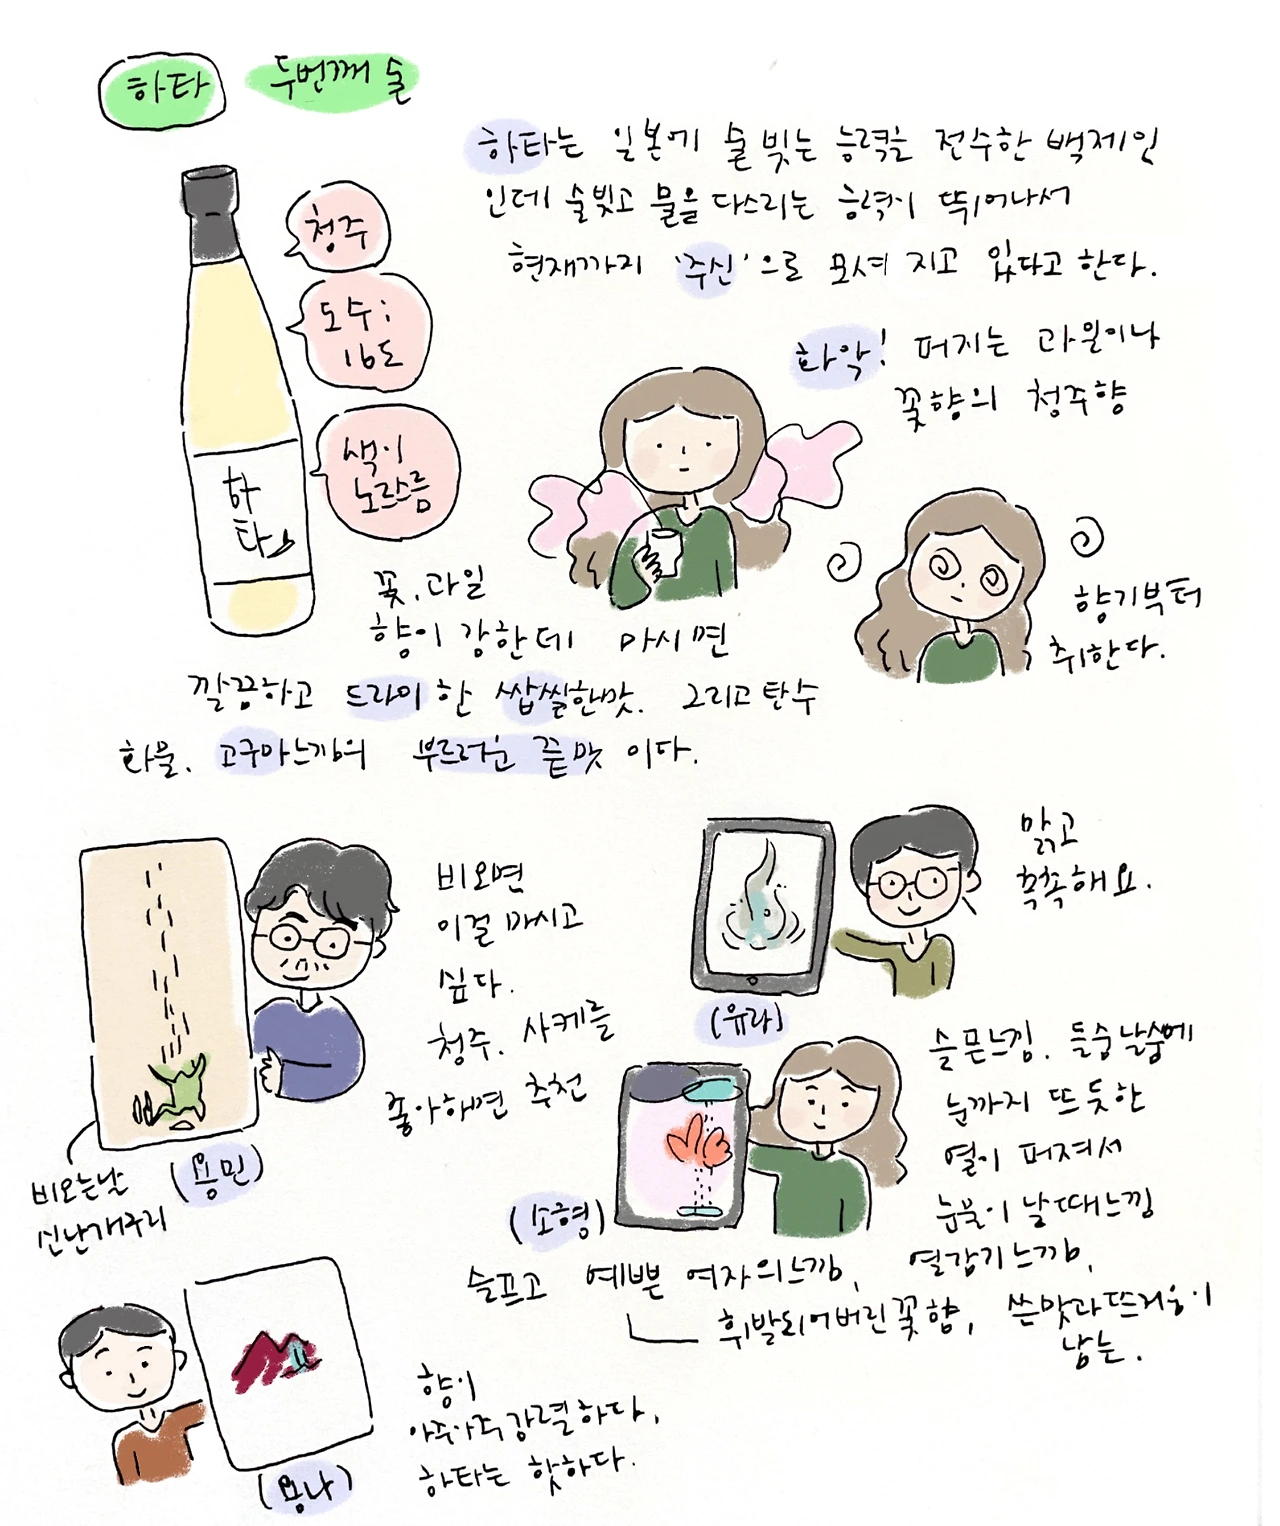 하타
두번째 술
하타는 일본에 술 빚는 능력을 전수한 백제인
인데 술빚고 물을 다스리는 능력이 뛰어나서
현재까지 '주신'으로 모셔 지고 있다고 한다.
청주
도수:
16도
색이
노르스름
하
타
화악! 퍼지는 과일이나
꽃향의 청주향
향기부터
취한다.
꽃, 과일
향이 강한데 마시면
깔끔하고 드라이한 쌉쌀한맛. 그리고 탄수
화물. 고구마느낌의 부드러운 끝맛 이다.
비오면
이걸 마시고
싶다.
청주. 사케를
좋아하면 추천
비오는날
신난개구리
(용민)
맑고
촉촉해요.
(유라)
슬픈느낌. 들숨날숨에
눈까지 뜨듯한
열이 퍼져서
눈물이 날때느낌
(소형)
슬프고 예쁜 여자의느낌, 열감기느낌,
휘발되어버린꽃향, 쓴맛과뜨거움이
남는.
향이
아주아주강렬하다.
하타는 핫하다.
(용나)